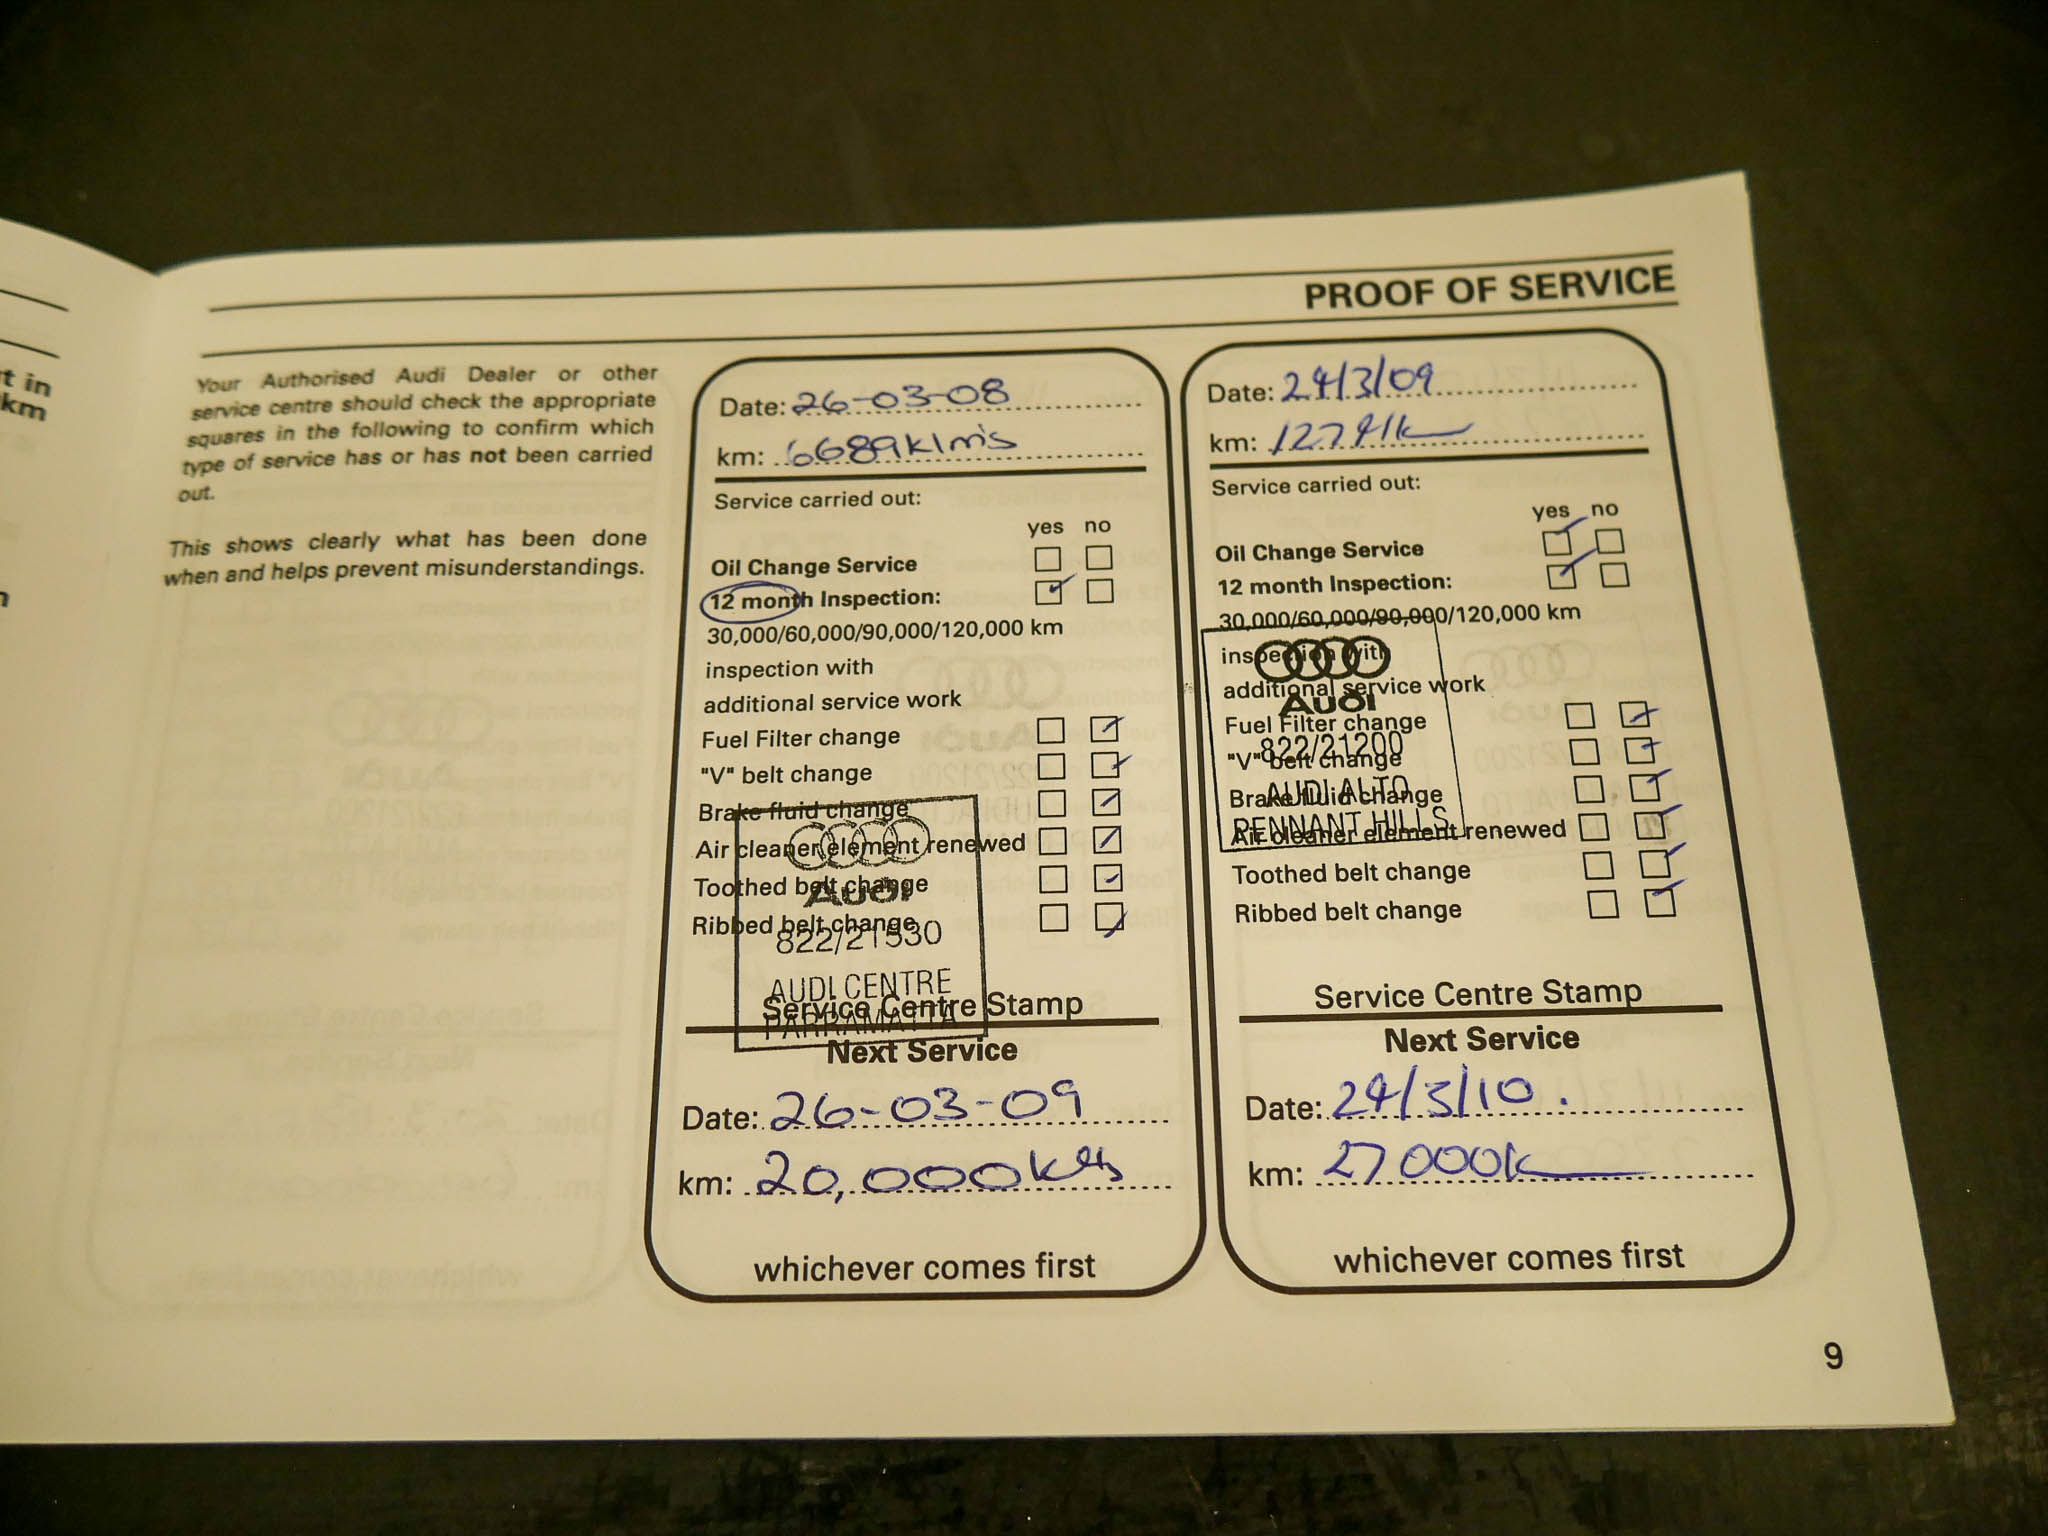 t in
km
PROOF OF SERVICE
Your Authorised Audi Dealer or other
service centre should check the appropriate
squares in the following to confirm which
type of service has or has not been carried
out.
This shows clearly what has been done
when and helps prevent misunderstandings.
Date: 26-03-08
km: 6689klm's
Service carried out:
yes no
Oil Change Service
12 month Inspection:
30,000/60,000/90,000/120,000 km
inspection with
additional service work
Fuel Filter change
"V" belt change
Brake fluid change
Air cleaner element renewed
Toothed belt change
Ribbed belt change
Audi
822/21530
AUDI CENTRE
PARRAMATTA
Service Centre Stamp
Next Service
Date: 26-03-09
km: 20,000
whichever comes first
Date: 24/3/09
km:
Service carried out:
yes no
Oil Change Service
12 month Inspection:
30,000/60,000/90,000/120,000 km
inspection with
additional service work
Fuel Filter change
"V" belt change
Brake fluid change
Air cleaner element renewed
Toothed belt change
Ribbed belt change
Audi
822/21200
AUDI ALTO
PENNANT HILLS
Service Centre Stamp
Next Service
Date: 24/3/10.
km: 27000k
whichever comes first
9